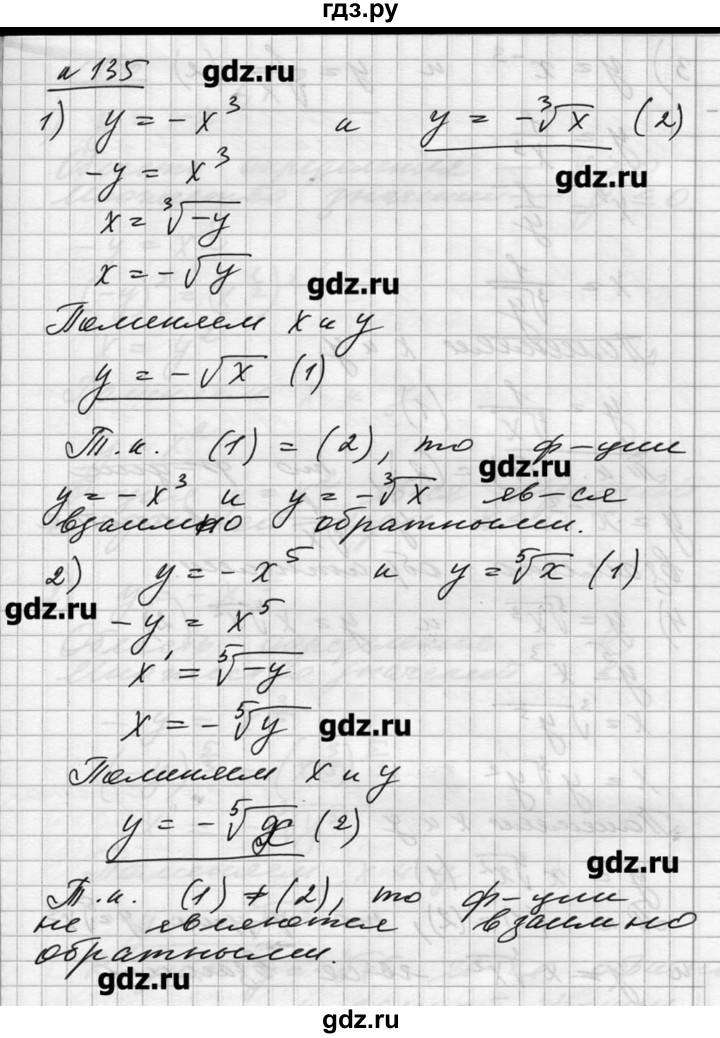 гдз.ру
№ 135 gdz.ru
1) y = -x³ и y = -∛x (2)
gdz.ru
-y = x³
x = ∛-y
x = -√y gdz.ru
Поменяем x и y
y = -√x (1)
Т.к. (1) = (2), то ф-ции
gdz.ru
y = -x³ и y = -∛x яв-ся
взаимно обратными.
2) y = -x⁵ и y = ⁵√x (1)
gdz.ru
-y = x⁵
x = ⁵√-y
x = -⁵√y gdz.ru
Поменяем x и y
y = -⁵√x (2)
gdz.ru
Т.к. (1) ≠ (2), то ф-ции
не являются взаимно
обратными.
gdz.ru
gdz.ru